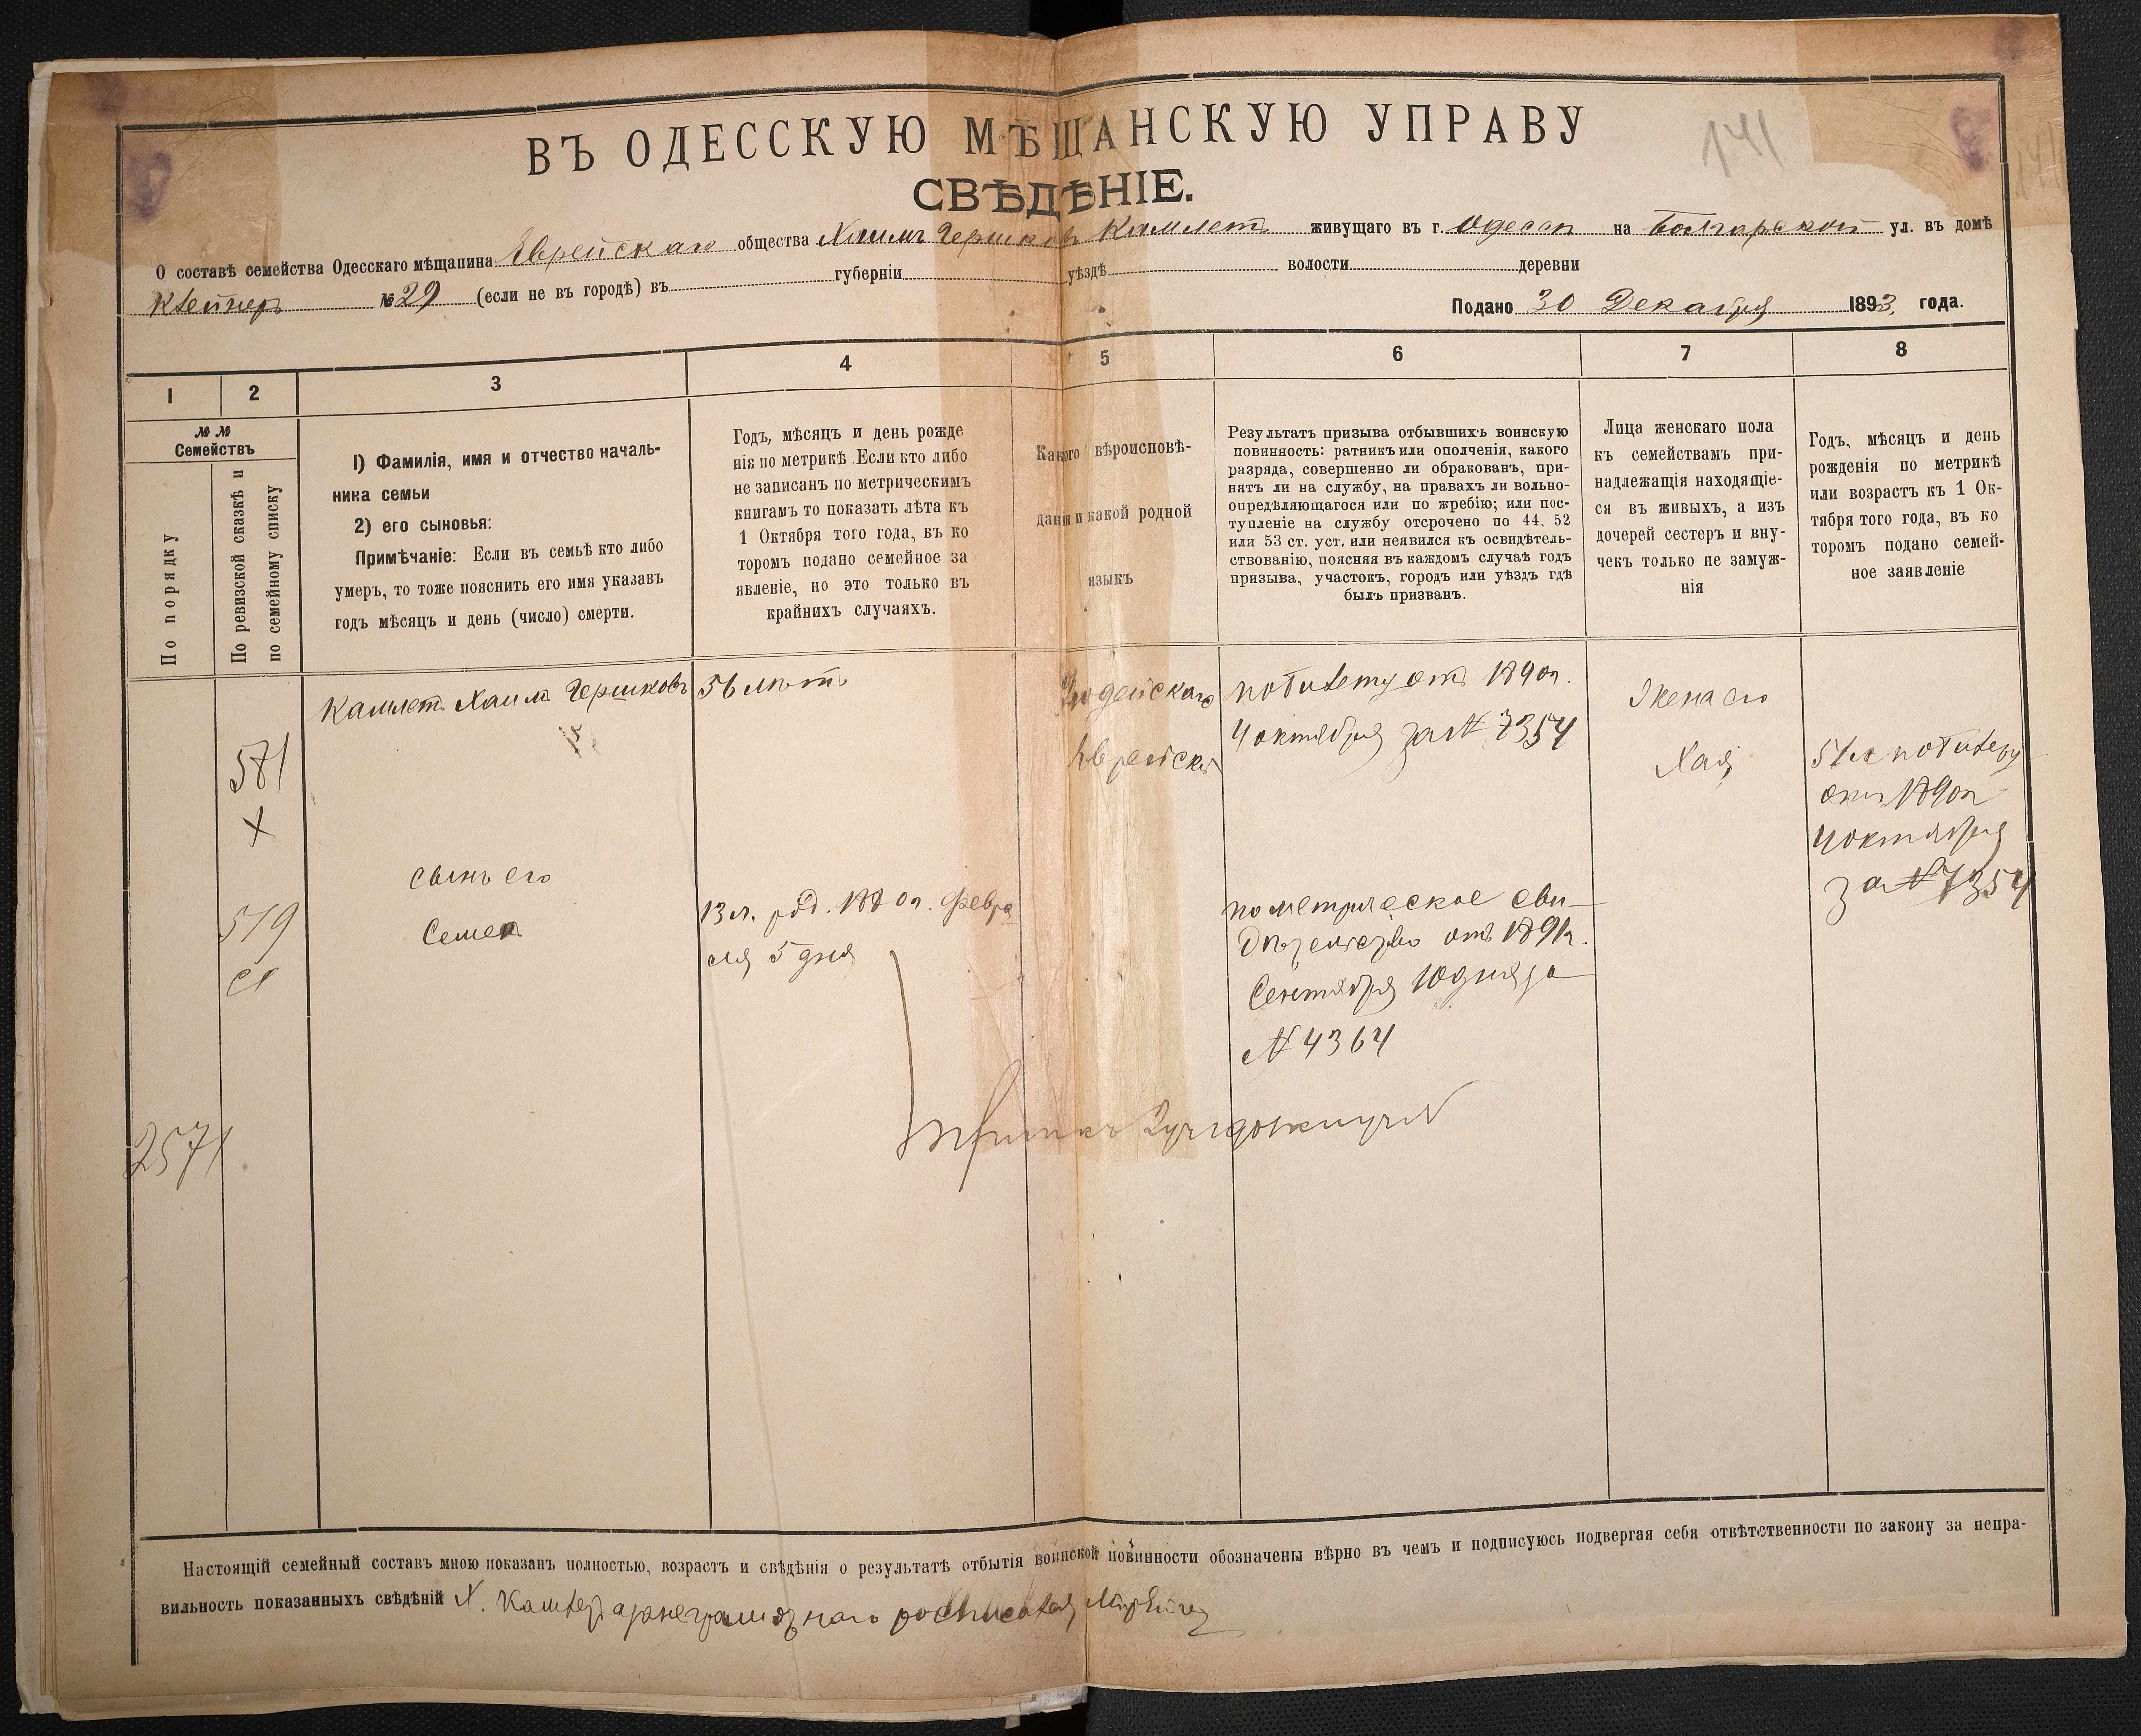 141
ВЪ ОДЕССКУЮ МѢЩАНСКУЮ УПРАВУ
СВѢДѢНІЕ.
О составѣ семейства Одесскаго мѣщанина Еврейскаго общества Хаимъ Гершковъ Камлетъ живущаго въ г. Одессѣ на Болгарской ул. въ домѣ
Клейнеръ № 29 (если не въ городѣ) въ губерніи уѣздѣ волости деревни
Подано 30 Декабря 1893 года.
1 2 3 4 5 6 7 8
№ № Семействъ
По порядку
По ревизской сказкѣ и
по семейному списку
1) Фамилія, имя и отчество началь-
ника семьи
2) его сыновья:
Примѣчаніе: Если въ семьѣ кто либо
умеръ, то тоже пояснить его имя указавъ
годъ мѣсяцъ и день (число) смерти.
Годъ, мѣсяцъ и день рожде
нія по метрикѣ. Если кто либо
не записанъ по метрическимъ
книгамъ то показать лѣта къ
1 Октября того года, въ ко
торомъ подано семейное за
явленіе, но это только въ
крайнихъ случаяхъ.
Какого вѣроисповѣ-
данія и какой родной
языкъ
Результатъ призыва отбывшихъ воинскую
повинность: ратникъ или ополченія, какого
разряда, совершенно ли обракованъ, при-
нятъ ли на службу, на правахъ ли вольно-
опредѣляющагося или по жребію; или пос-
тупленіе на службу отсрочено по 44, 52
или 53 ст. уст. или неявился къ освидѣтель-
ствованію, поясняя въ каждомъ случаѣ годъ
призыва, участокъ, городъ или уѣздъ гдѣ
былъ призванъ.
Лица женскаго пола
къ семействамъ при-
надлежащія находящіе-
ся въ живыхъ, а изъ
дочерей сестеръ и вну-
чекъ только не замуж-
нія
Годъ, мѣсяцъ и день
рожденія по метрикѣ
или возрастъ къ 1 Ок-
тября того года, въ ко
торомъ подано семей-
ное заявленіе
581
X
519
2571
Камлетъ Хаимъ Гершковъ
56 лѣтъ
Іюдейскаго
Еврейскій
по билету отъ 1890 г.
4 октября за № 7354
Жена его
Хая
51 л. по билету
отъ 1890 г.
4 октября
за № 7354
сынъ его
Семен
13 л. род. 1880 г. Февра
ля 5 дня
по метрическое сви-
дѣтельство отъ 1891 г.
Сентября 10 дня за
№ 4364
Настоящій семейный составъ мною показанъ полностью, возрастъ и свѣдѣнія о результатѣ отбытія воинской повинности обозначены вѣрно въ чемъ и подписуюсь подвергая себя отвѣтственности по закону за непра-
вильность показанныхъ свѣдѣній Х. Камлетъ а за неграмотнаго